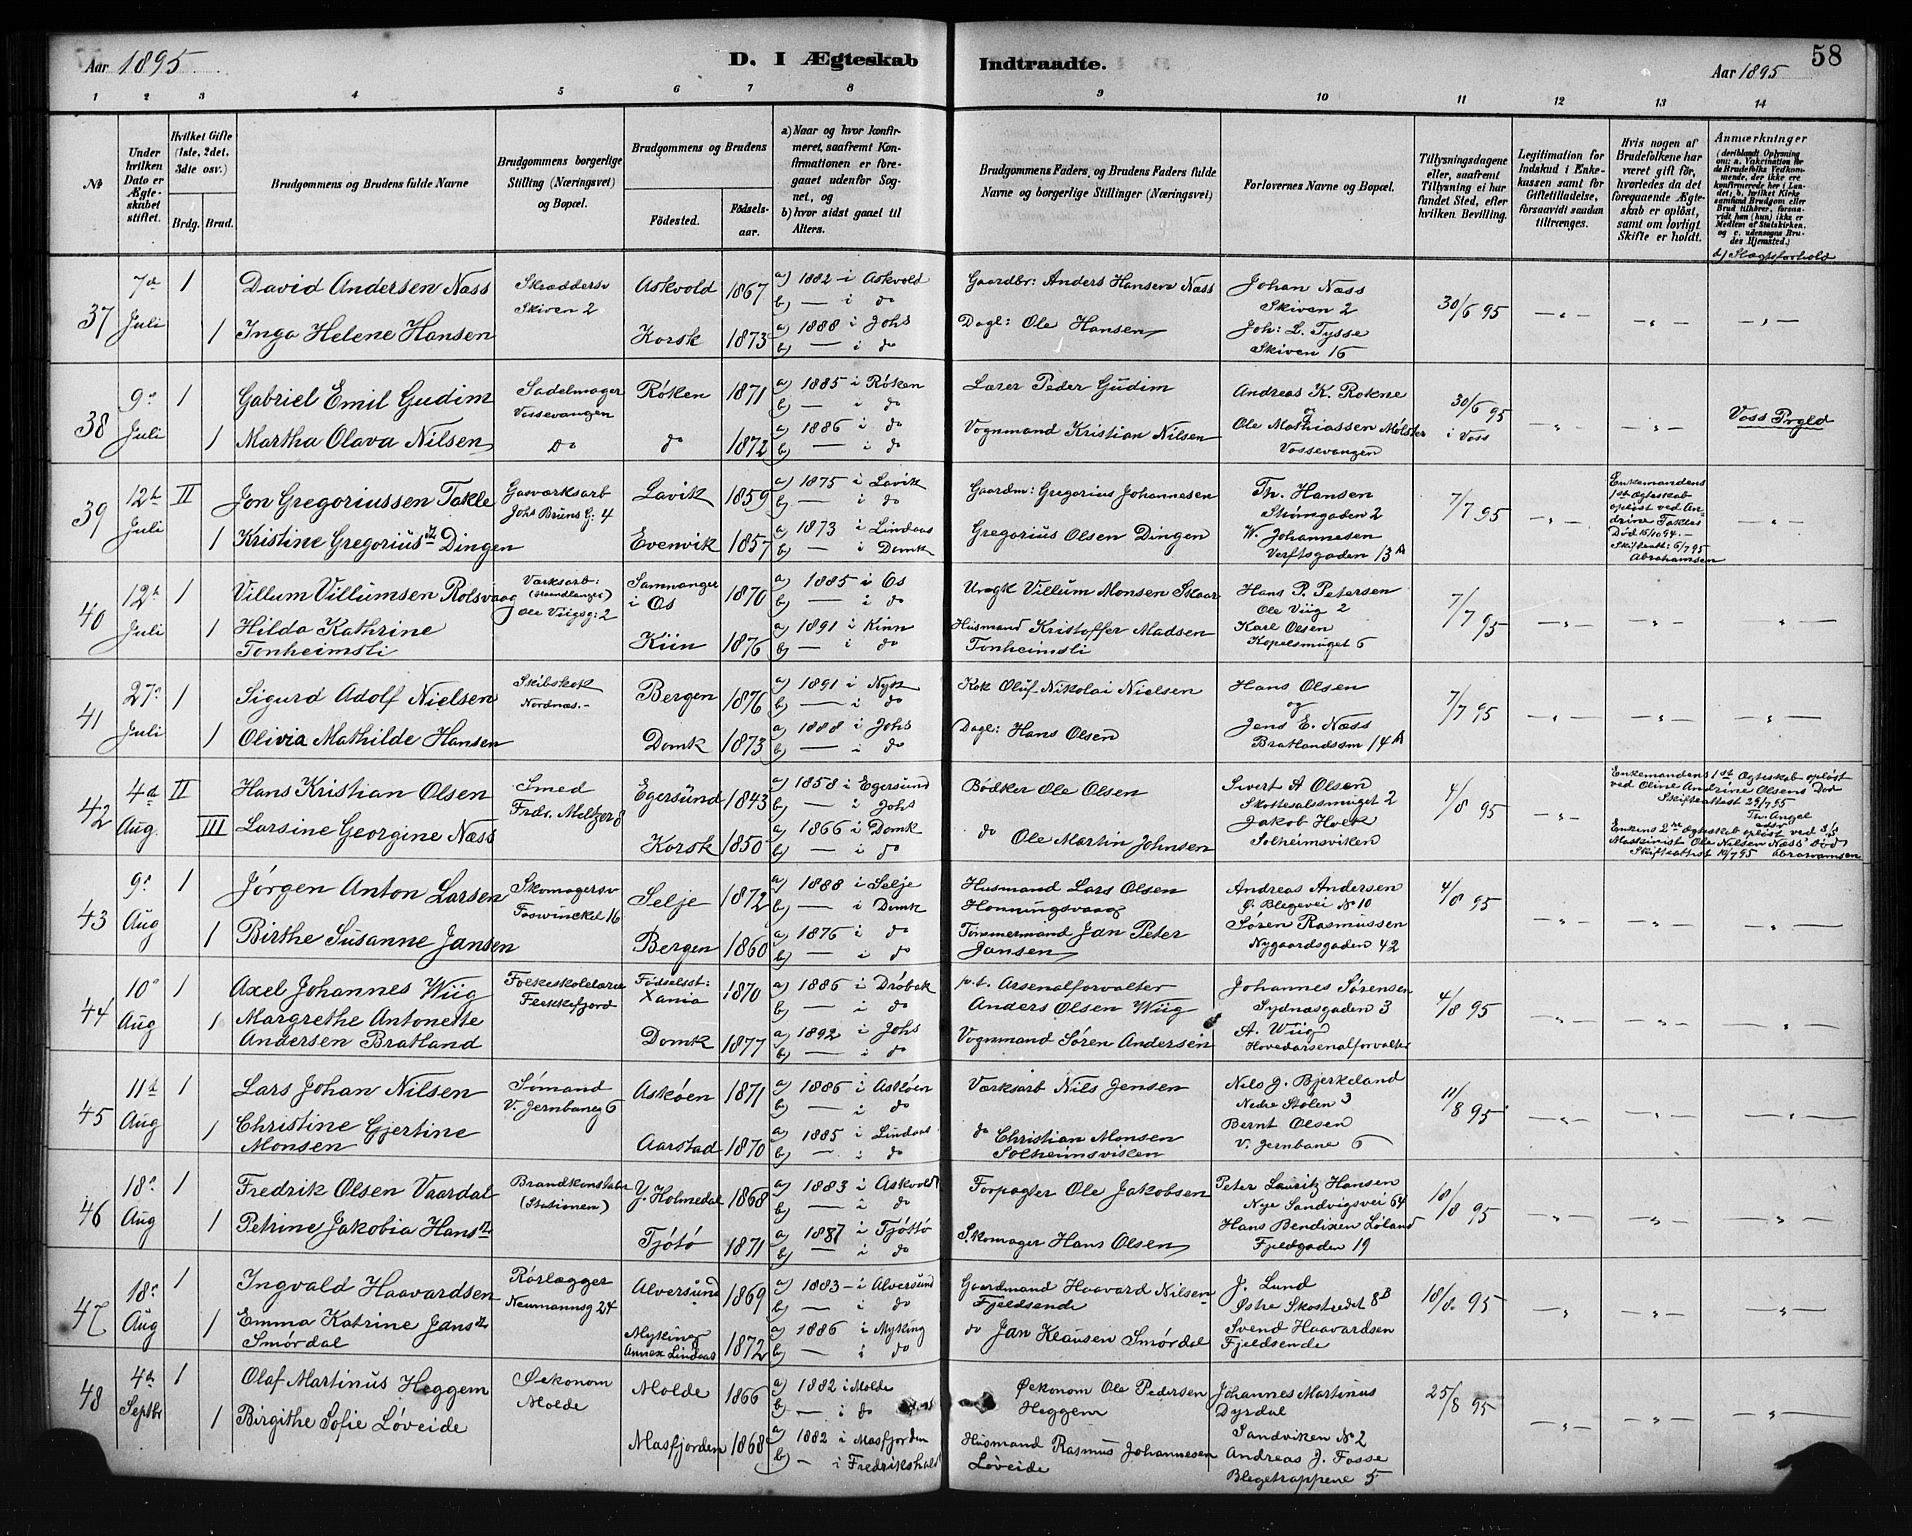 58
Aar 1895
D. I Ægteskab Indtraadte.
Aar 1895
1 2 3 4 5 6 7 8 9 10 11 12 13 14
No
Under hvilken Dato er Ægteskabet stiftet.
Hvilket Gifte (1ste, 2det, 3dte osv.)
Brdg. Brud.
Brudgommens og Brudens fulde Navne
Brudgommens borgerlige Stilling (Næringsvei) og Bopæl.
Brudgommens og Brudens
Fødested. Fødselsaar.
a) Naar og hvor konfirmeret, saafremt Konfirmationen er foregaaet udenfor Sognet, og
b) hvor sidst gaaet til Alters.
Brudgommens Faders, og Brudens Faders fulde Navne og borgerlige Stillinger (Næringsvei)
Forlovernes Navne og Bopæl.
Tillysningsdagene eller, saafremt Tillysning ei har fundet Sted, efter hvilken Bevilling.
Legitimation for Indskud i Enkekassen samt for Giftetilladelse, forsaavidt saadan tiltrænges.
Hvis nogen af Brudefolkene har været gift før, hvorledes da det foregaaende Ægteskab er opløst, samt om lovligt Skifte er holdt.
Anmærkninger
(deriblandt Oplysning om: a. Vakcination for de Brudefolks Vedkommende, der ikke ere konfirmerede her i Landet; b. hvilket Kirkesamfund Brudgom eller Brud tilhører, forsaavidt han (hun) ikke er Medlem af Statskirken, og c. udensogns Brudes Hjemsted.)
d) Slægtsforhold
37 7de Juli 1 David Andersen Næss Skræddersv Askvold 1867 a) 1882 i Askvold Gaardbr: Anders Hansen Næss Johan Næss 30/6 95
Skiven 2 b) — i do Skiven 2
1 Inga Helene Hansen Korsk 1873 a) 1888 i Johs Dagl: Ole Hansen Joh: L. Tysse
b) — i do Skiven 16
38 9de Juli 1 Gabriel Emil Gudim Sadelmager Røken 1871 a) 1885 i Røken Lærer Peder Gudim Andreas K. Rokne 30/6 95 Voss Prgld
Vossevangen b) — i do og i Voss
1 Martha Olava Nilsen Do do 1872 a) 1886 i do Vognmand Kristian Nilsen Ole Mathiassen Mølster
b) — i do Vossevangen
39 12te Juli II Jon Gregoriussen Takle Gasværksarb Lavik 1859 a) 1875 i Lavik Gaardm: Gregorius Johannesen Th. Hansen 7/7 95 Enkemandens
Johs Bruns G: 4 b) — i do Strømgaden 2 1ste Ægteskab
1 Kristine Gregoriusdt Dingen Evenvik 1857 a) 1873 i Lindaas Gregorius Olsen Dingen W. Johannesen opløst ved Andrine Takles
b) — i Domk Verftsgaden 13 A Død 15/10 94. — Skifteatt: 6/7 95 Abrahamsen
40 12te Juli 1 Villum Villumsen Rolsvaag Værksarb: Samnanger 1870 a) 1885 i Os Villum Monsen Skaar Hans P. Petersen 7/7 95
(Haandlanger) i Os b) — i do Ole Viig 2
1 Hilda Kathrine Ole Viigsg: 2 Kiin 1876 a) 1891 i Kinn Husmand Kristoffer Madsen Karl Olsen
Tonheimsli b) — i do Tonheimsli Kopelsmuget 6
41 27de Juli 1 Sigurd Adolf Nielsen Skibskok Bergen 1876 a) 1891 i Nyk Kok Oluf Nikolai Nielsen Hans Olsen 7/7 95
Nordnæs. — b) — i do og
1 Olivia Mathilde Hansen Domk 1873 a) 1888 i Johs Dagl: Hans Olsen Jens E. Næss
b) — i do Bratlandssm 14 A
42 4de Aug. II Hans Kristian Olsen Smed Egersund 1843 a) 1858 i Egersund Bødker Ole Olsen Sivert A Olsen 4/8 95 Enkemandens 1ste Ægteskab opløst
Frdr. Meltzer 8 b) — i Johs Skottesalsmuget 2 ved Oline Andrine Olsens Død
III Larsine Georgine Næss Korsk 1850 a) 1866 i Domk do Ole Martin Johnsen Jakob Holk Skifteattest 29/7 95 Th. Angel
b) — i do Solheimsviken Enkens 2det Ægteskab opløst ved
Maskinist Ole Nilsen Næss' Død
Skifteattest 10/7 95 Abrahamsen
43 9de Aug 1 Jørgen Anton Larsen Skomagersv Selje 1872 a) 1888 i Selje Husmand Lars Olsen Andreas Andersen 4/8 95
Foswinckel 16 b) — i Domk Honningsvaag Ø. Blegevei No 10
1 Birthe Susanne Jansen Bergen 1860 a) 1876 i do Tømmermand Jan Peter Søren Rasmussen
b) — i do Jansen Nygaardsgaden 42
44 10de Aug 1 Axel Johannes Wiig Folkeskolelærer Fødselsst: 1870 a) 1886 i Drøbak p.t. Arsenalforvalter Johannes Sørensen 4/8 95
Flekkefjord Xania b) — i do Anders Olsen Wiig Sydnæsgaden 3
1 Margrethe Antonette Domk 1877 a) 1892 i Johs Vognmand Søren Andersen A. Wiig
Andersen Bratland b) — i do Hovedarsenalforvalter
45 11te Aug 1 Lars Johan Nilsen Sømand Askøen 1871 a) 1886 i Askøen Værksarb Nils Jensen Nils J. Bjerkeland 11/8 95
V. Jernbaneg 6 b) — i do Nedre Stølen 3
1 Christine Gjertine Aarstad 1870 a) 1885 i Lindaas do Christian Monsen Bernt Olsen
Monsen b) — i do Solheimsviken V. Jernbane 6
46 18de Aug 1 Fredrik Olsen Vaardal Brandkonstabel Y. Holmedal 1868 a) 1883 i Askvold Forpagter Ole Jakobsen Peter Lauritz Hansen 18/8 95
(Stationen) b) — i do Nye Sandvigsvei 64
1 Petrine Jakobia Hansdt Tjøtø 1871 a) 1887 i Tjøttø Skomager Hans Olsen Hans Bendixen Løland
b) — i do Fjeldgaden 19
47 18de Aug 1 Ingvald Haavardsen Rørlægger Alversund 1869 a) 1883 — i Alversund Gaardmand Haavard Nilsen J. Lund 18/8 95
Neumannsg 24 b) — i do Fjeldsende Østre Skostredet 8 B
1 Emma Katrine Jansdt Myking 1872 a) 1886 i Myking do Jan Klausen Smørdal Svend Haavardsen
Smørdal Annex Lindaas b) — i do Fjeldsende
48 4de Septbr 1 Olaf Martinus Heggem Økonom Molde 1866 a) 1882 i Molde Økonom Ole Pedersen Johannes Martinus 25/8 95
Molde b) — i do Heggem Dyrdal
1 Birgithe Sofie Løveide Masfjorden 1868 a) 1882 i Masfjorden Husmand Rasmus Johannesen Sandviken No 2
b) — i Fredrikshald Løveide Andreas J. Fosse
Blegetrappene 5